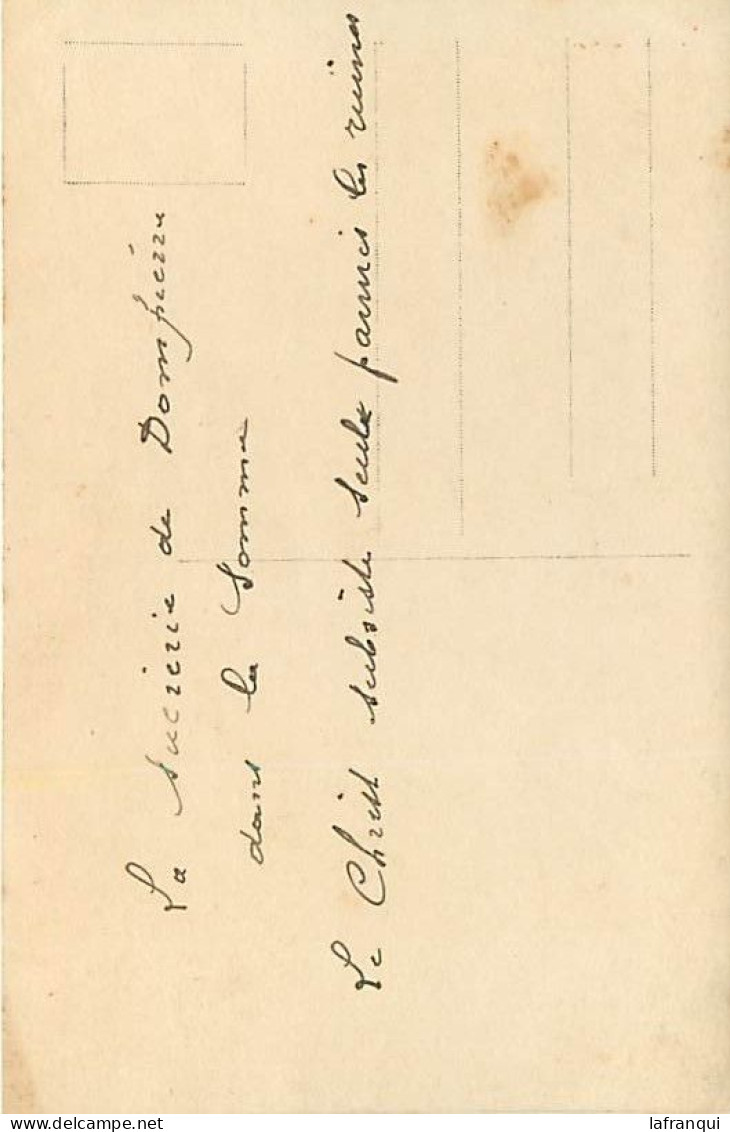 La sucrerie de Dompierre
dans la Somme
Le Christ subsiste seule parmis les ruines
www.delcampe.net
lafranqui